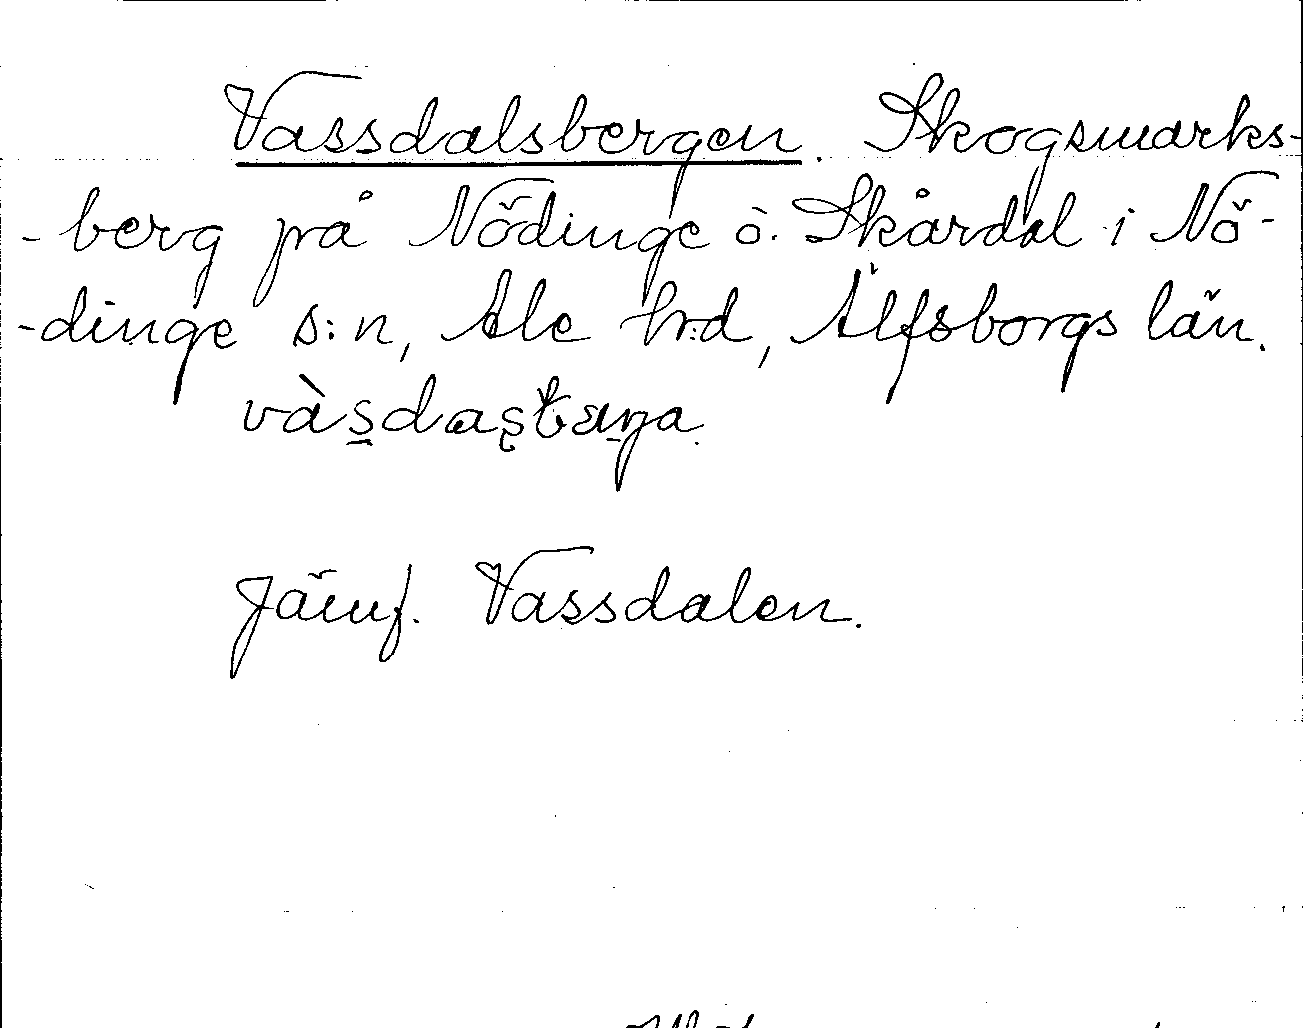 Vassdalsbergen. Skogsmarks-
-berg på Nödinge ö. Skårdal i Nö-
-dinge s:n, Ale hrd, Älfsborgs län.
Jämf. Vassdalen.